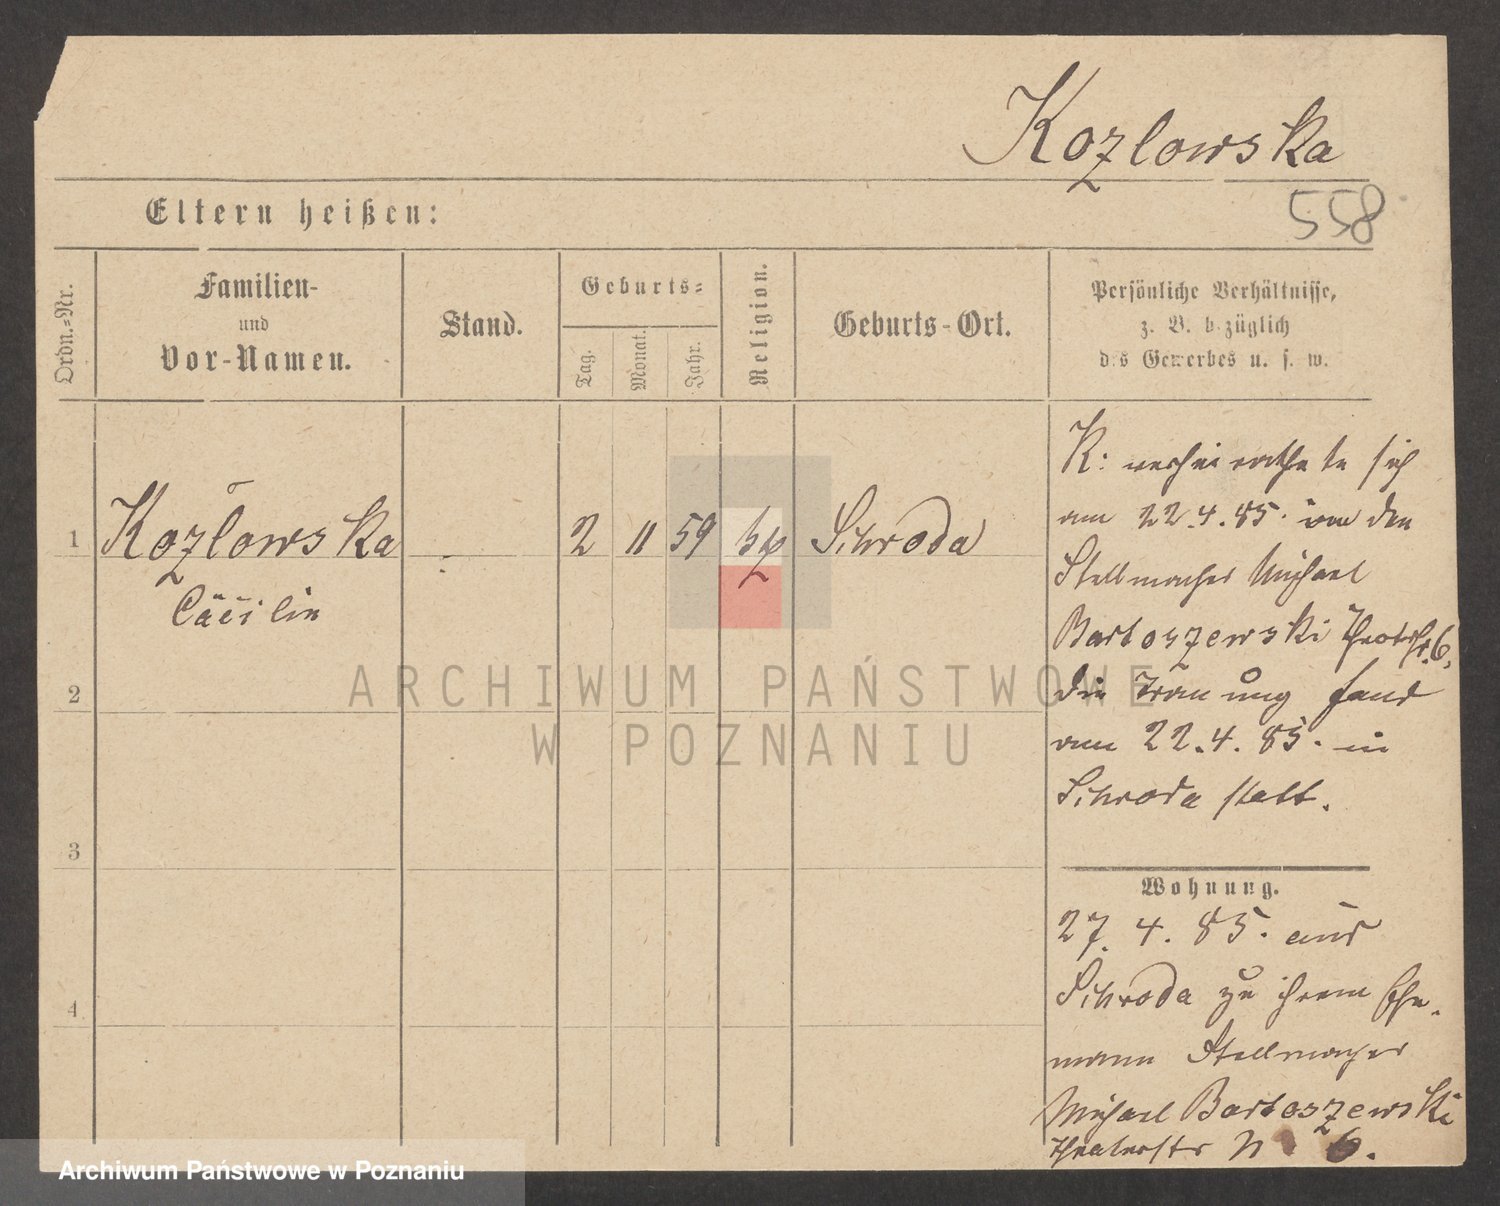 Kozlowska
558
Eltern heißen:
Ordn.-Nr.
Familien-
und
Vor-Namen.
Stand.
Geburts-
Tag.
Monat.
Jahr.
Religion.
Geburts-Ort.
Persönliche Verhältnisse,
z. B. bezüglich
des Gewerbes u. s. w.
1
Kozlowska
Cäcilie
2 11 59
Schroda
K: verheirathete sich
am 22.4.85. den
Stellmacher Michael
Bartoszewski Theaterstr. 6,
die Trauung fand
am 22.4.85. in
Schroda statt.
2
3
4
Wohnung.
27. 4. 85. aus
Schroda zu ihrem Ehe-
mann Stellmacher
Michael Bartoszewski
Theaterstr N 6.
ARCHIWUM PAŃSTWOWE
W POZNANIU
Archiwum Państwowe w Poznaniu